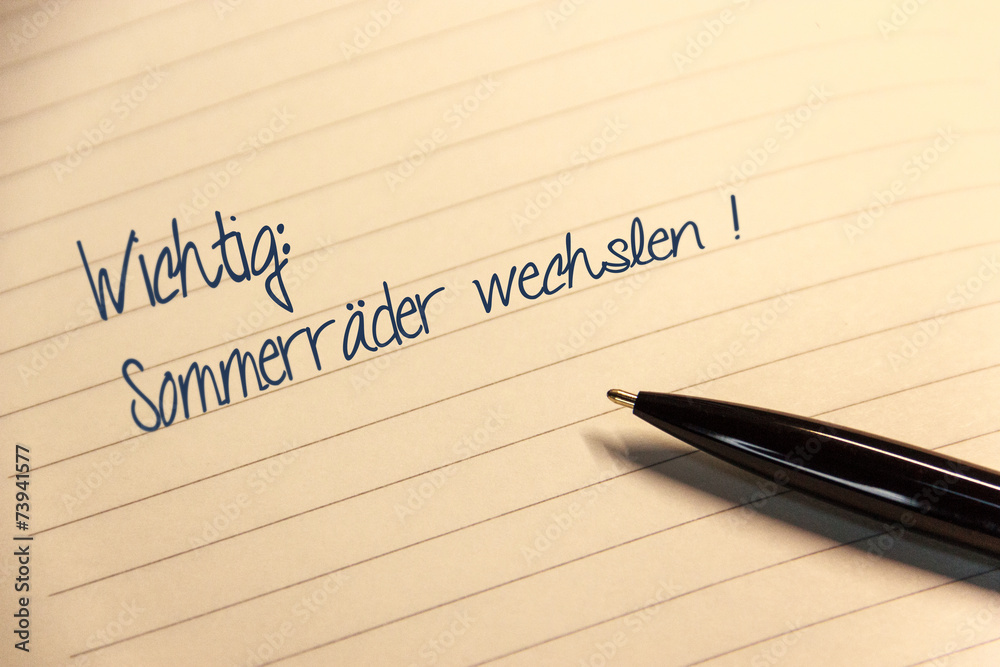 Wichtig:
Sommerräder wechslen !
Adobe Stock | #73941577